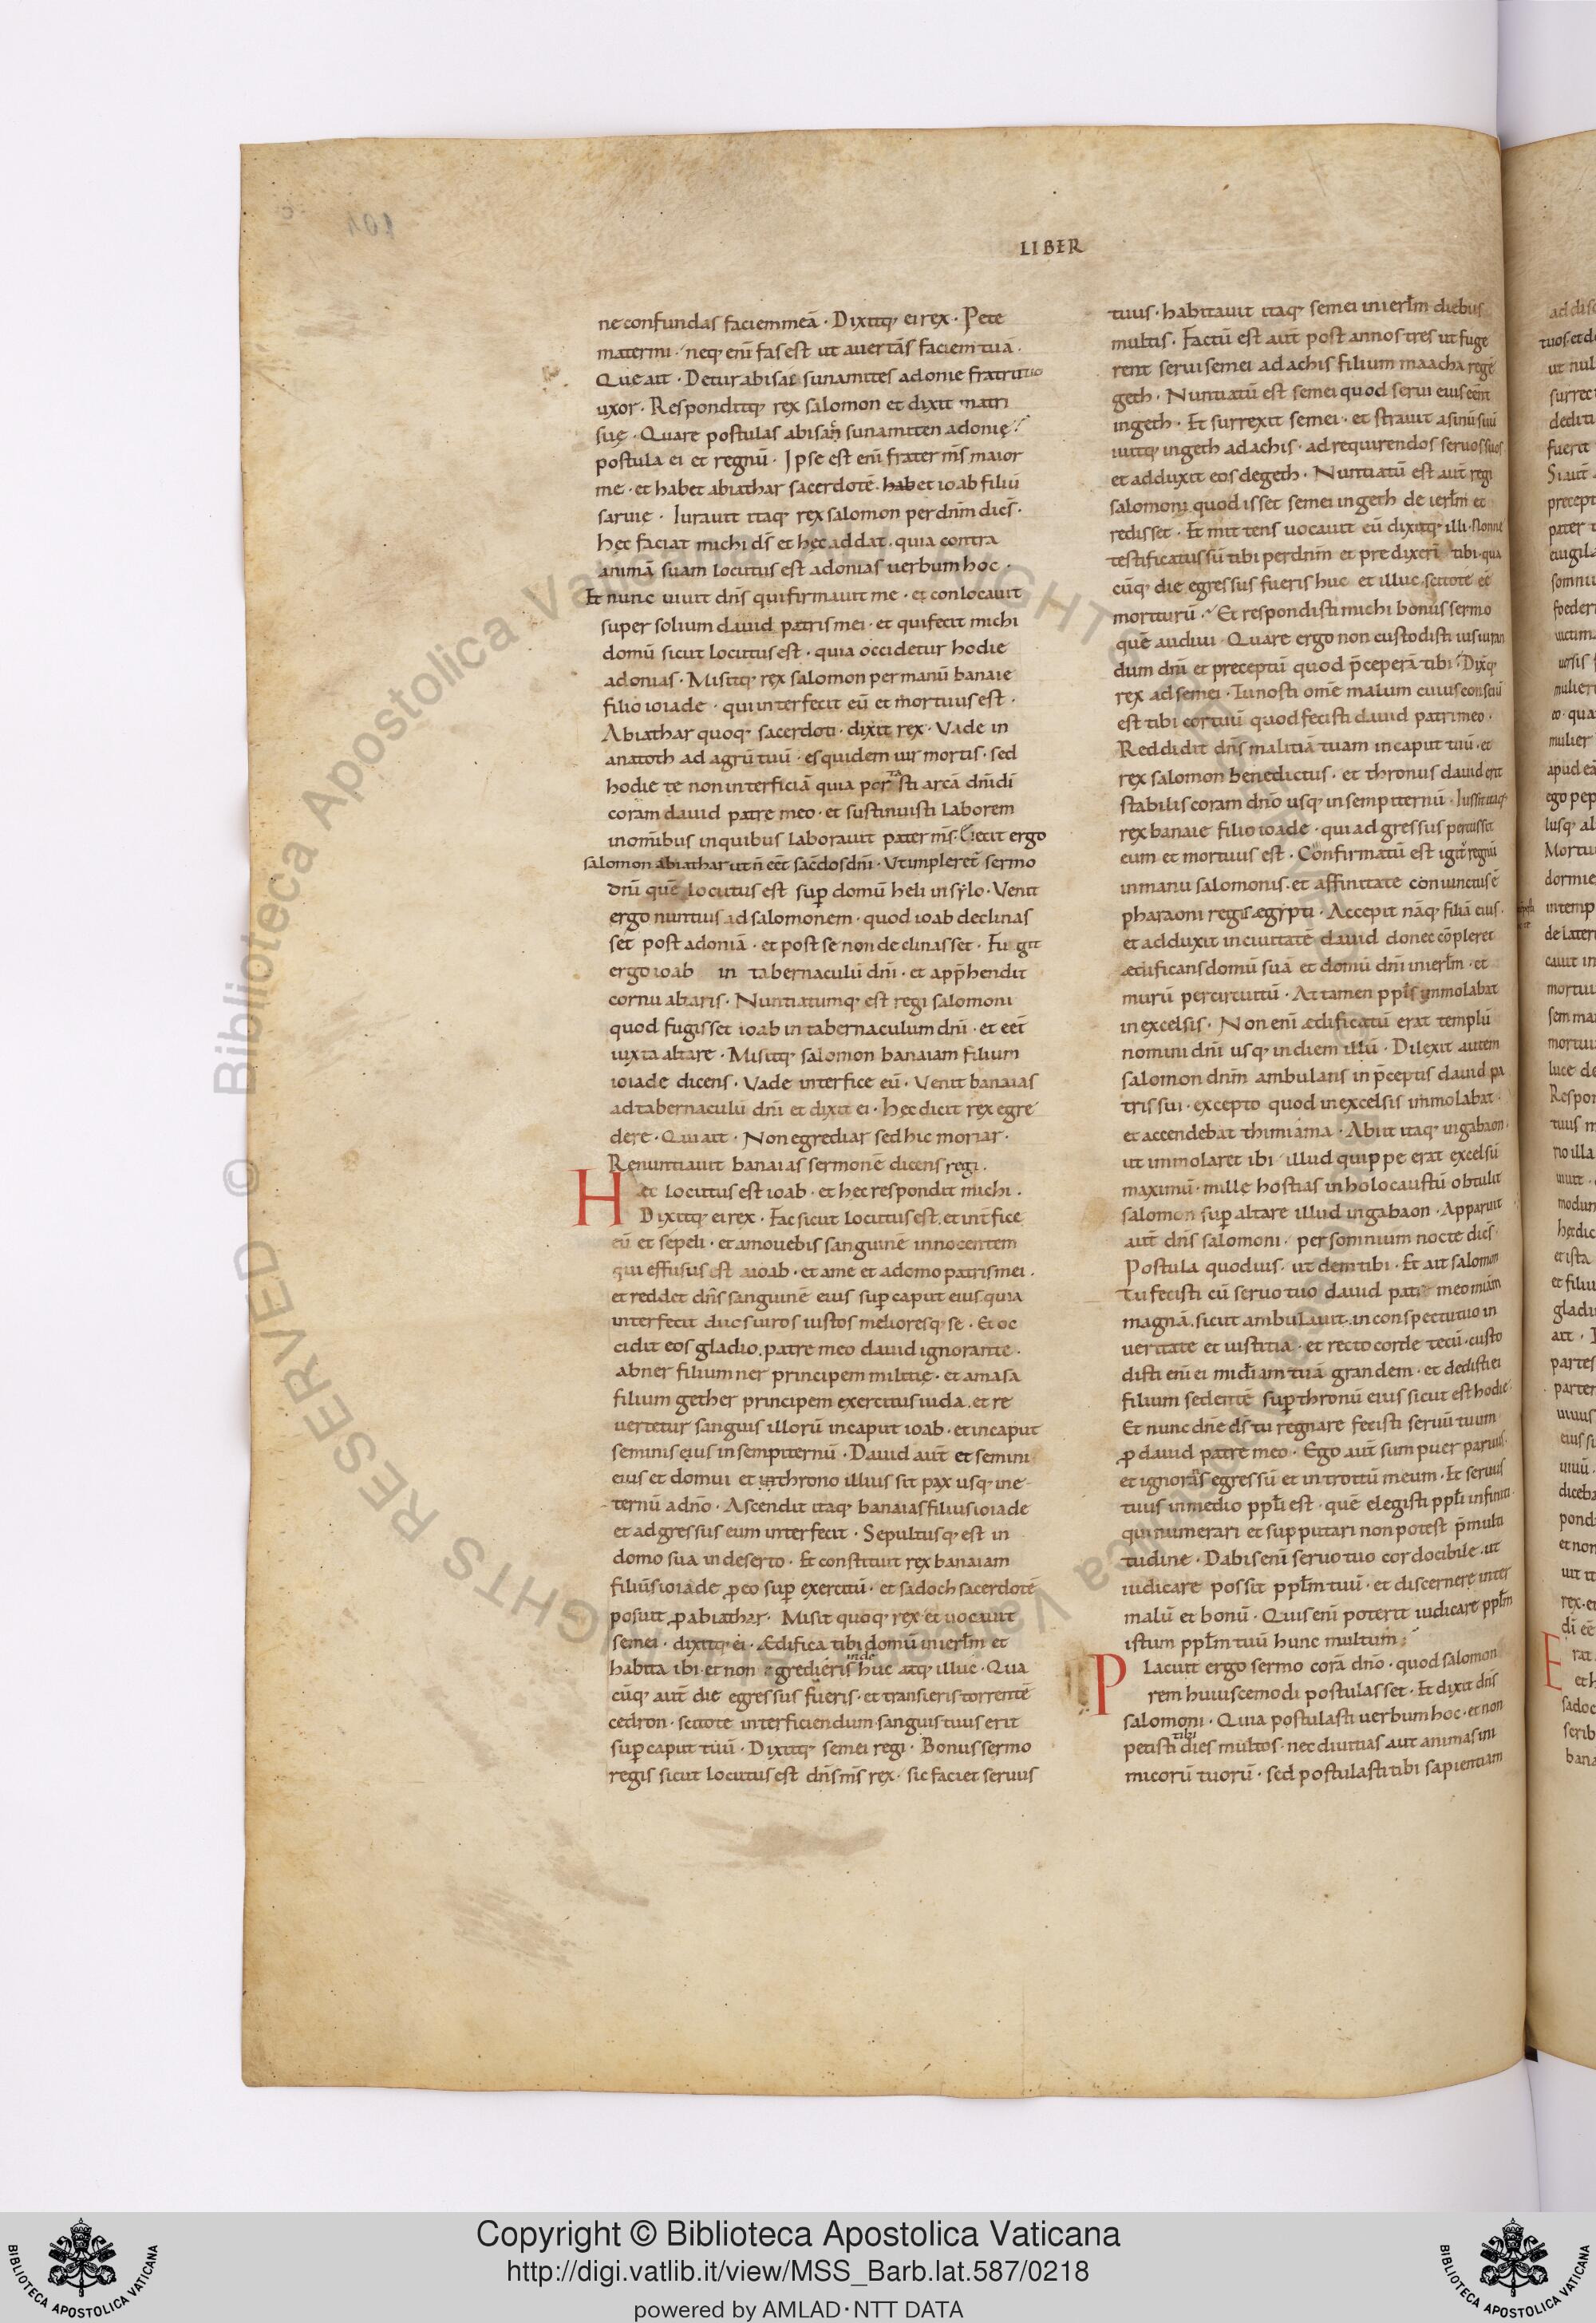 LIBER
ne confundas faciem meā · Dixitq; ei rex · Pete
mater mi · neq; enī fas est ut auertās faciem tuā ·
Que ait · Detur abisac sunamites adonie fratri tuo
uxor · Responditq; rex salomon et dixit matri
suę · Quare postulas abisag sunamiten adonię?
postula ei et regnū · Ipse est enī frater m̄s maior
me · et habet abiathar sacerdotē · habet ioab filiū
saruie · Iurauit itaq; rex salomon per dn̄m dicēs ·
hęc faciat michi ds̄ et hęc addat · quia contra
animā suam locutus est adonias uerbum hoc ·
Et nunc uiuit dn̄s qui firmauit me · et conlocauit
super solium dauid patris mei · et qui fecit michi
domū sicut locutus est · quia occidetur hodie
adonias · Misitq; rex salomon per manū banaie
filio ioiade · qui interfecit eū et mortuus est ·
Abiathar quoq; sacerdoti · dixit rex · Vade in
anatoth ad agrū tuū · es quidem uir mortis · sed
hodie te non interficiā quia portasti arcā dn̄i dī
coram dauid patre meo · et sustinuisti laborem
in om̄ibus in quibus laborauit pater m̄s · Eiecit ergo
salomon abiathar ut n̄ eēt sac̄dos dn̄i · Vt impleret̄ sermo
dn̄i quē locutus est sup̱ domū heli in sylo · Venit
ergo nuntius ad salomonem · quod ioab declinas
set post adoniā · et post se non declinasset · Fugit
ergo ioab in tabernaculū dn̄i · et app̄hendit
cornu altaris · Nuntiatumq; est regi salomoni
quod fugisset ioab in tabernaculum dn̄i · et eēt
iuxta altare · Misitq; salomon banaiam filium
ioiade dicens · Vade interfice eū · Venit banaias
ad tabernaculū dn̄i et dixit ei · Hęc dicit rex egre
dere · Qui ait · Non egrediar sed hic moriar ·
Renuntiauit banaias sermonē dicens regi ·
Hec locutus est ioab · et hęc respondit michi ·
Dixitq; ei rex · Fac sicut locutus est · et int̄fice
eū et sepeli · et amouebis sanguinē innocentem
qui effusus est a ioab · et a me et a domo patris mei ·
et reddet dn̄s sanguinē eius sup̱ caput eius quia
interfecit duos uiros iustos melioresq; se · Et oc
cidit eos gladio · patre meo dauid ignorante ·
abner filium ner principem militię · et amasa
filium gether principem exercitus iuda · et re
uertetur sanguis illorū in caput ioab · et in caput
seminis eius in sempiternū · Dauid aūt et semini
eius et domui et throno illius sit pax usq; in e
ternū a dn̄o · Ascendit itaq; banaias filius ioiade
et adgressus eum interfecit · Sepultusq; est in
domo sua in deserto · Et constituit rex banaiam
filiū ioiade p̱ eo sup̱ exercitū · et sadoch sacerdotē
posuit p̱ abiathar · Misit quoq; rex et uocauit
semei · dixitq; ei · Ædifica tibi domū in ierl̄m et
habita ibi · et non egredieris inde huc atq; illuc · Qua
cūq; aūt die egressus fueris · et transieris torrentē
cedron · scitote interficiendum · sanguis tuus erit
sup̱ caput tuū · Dixitq; semei regi · Bonus sermo
regis sicut locutus est dn̄s m̄s rex · sic faciet seruus
tuus · habitauit itaq; semei in ierl̄m diebus
multis · Factū est aūt post annos tres ut fuge
rent serui semei ad achis filium maacha regē
geth · Nuntiatū est semei quod serui eius eēnt
in geth · Et surrexit semei · et strauit asinū suū
iuitq; in geth ad achis · ad requirendos seruos suos
et adduxit eos de geth · Nuntiatū est aūt regi
salomoni quod isset semei in geth de ierl̄m et
redisset · Et mittens uocauit eū dixitq; illi · Nonne
testificatus sū tibi per dn̄m et predixerī tibi · qua
cūq; die egressus fueris huc et illuc · scitote eē
moriturū? Et respondisti michi bonus sermo
quē audiui · Quare ergo non custodisti iusiuran
dum dn̄i et preceptū quod p̄ceperā tibi? Dixq;
rex ad semei · Tu nosti om̄e malum cuius consciū
est tibi cor tuū quod fecisti dauid patri meo ·
Reddidit dn̄s malitiā tuam in caput tuū · et
rex salomon benedictus · et thronus dauid erit
stabilis coram dn̄o usq; in sempiternū · Iussit itaq;
rex banaie filio ioiade · qui adgressus percussit
eum et mortuus est · Confirmatū est igit̄ regnū
in manu salomonis · et affinitate coniunctus ē
pharaoni regi ægypti · Accepit nāq; filiā eius ·
et adduxit in ciuitatē dauid donec cōpleret
ædificans domū suā et domū dn̄i in ierl̄m · et
murū per circuitū · Attamen ppl̄s immolabat
in excelsis · Non enī ædificatū erat templū
nomini dn̄i usq; in diem illū · Dilexit autem
salomon dn̄m ambulans in p̄ceptis dauid pa
tris sui · excepto quod in excelsis immolabat ·
et accendebat thimiama · Abiit itaq; in gabaon ·
ut immolaret ibi · illud quippe erat excelsū
maximū · mille hostias in holocaustū obtulit
salomon sup̱ altare illud in gabaon · Apparuit
aūt dn̄s salomoni · per somnium nocte dicēs ·
Postula quod uis · ut dem tibi · Et ait salomon
Tu fecisti cū seruo tuo dauid patre meo mīam
magnā · sicut ambulauit · in conspectu tuo in
ueritate et iustitia · et recto corde tecū · custo
disti enī ei mīdiam tuā grandem · et dedisti ei
filium sedentē sup̱ thronū eius sicut est hodie
Et nunc dn̄e ds̄ tu regnare fecisti seruū tuum
p̱ dauid patre meo · Ego aūt sum puer paruus ·
et ignorās egressū et introitū meum · Et seruus
tuus in medio ppl̄i est · quē elegisti ppl̄i infiniti ·
qui numerari et supputari non potest p̄ multi
tudine · Dabis enī seruo tuo cor docibile · ut
iudicare possit ppl̄m tuū · et discernere inter
malū et bonū · Quis enī poterit iudicare ppl̄m
istum ppl̄m tuū hunc multum?
Placuit ergo sermo corā dn̄o · quod salomon
rem huiuscemodi postulasset · Et dixit dn̄s
salomoni · Quia postulasti uerbum hoc · et non
petisti tibi dies multos · nec diuitias aut animas ini
micorū tuorū · sed postulasti tibi sapientiam
Copyright © Biblioteca Apostolica Vaticana
http://digi.vatlib.it/view/MSS_Barb.lat.587/0218
powered by AMLAD·NTT DATA